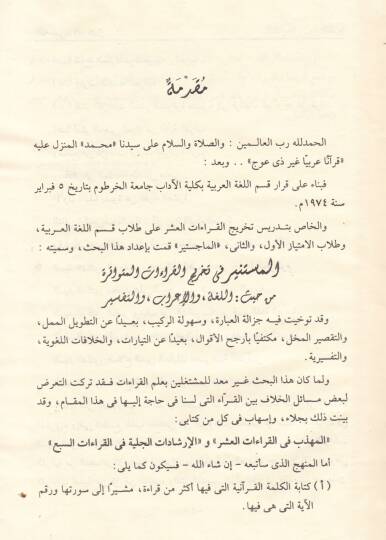 مُقَدِّمَةٌ
الحمدلله رب العالمين : والصلاة والسلام على سيدنا «محمد» المنزل عليه
«قرآنًا عربيًا غير ذى عوج» . . وبعد :
فبناء على قرار قسم اللغة العربية بكلية الآداب جامعة الخرطوم بتاريخ ٥ فبراير
سنة ١٩٧٤م.
والخاص بتدريس تخريج القراءات العشر على طلاب قسم اللغة العربية،
وطلاب الامتياز الأول، والثانى، «الماجستير» قمت بإعداد هذا البحث، وسميته :
المستنير فى تخريج القراءات المتواترة
من حيث : اللغة، والإعراب، والتفسير
وقد توخيت فيه جزالة العبارة، وسهولة الركيب، بعيدًا عن التطويل الممل،
والتقصير المخل، مكتفيًا بأرجح الأقوال، بعيدًا عن التيارات، والخلافات اللغوية،
والتفسيرية.
ولما كان هذا البحث غير معد للمشتغلين بعلم القراءات فقد تركت التعرض
لبعض مسائل الخلاف بين القراء التى لسنا فى حاجة إليها فى هذا المقام، وقد
بينت ذلك بجلاء، وإسهاب فى كل من كتابى :
«المهذب فى القراءات العشر» و «الإرشادات الجلية فى القراءات السبع»
أما المنهج الذى سأتبعه - إن شاء الله - فسيكون كما يلى :
(أ) كتابة الكلمة القرآنية التى فيها أكثر من قراءة، مشيرًا إلى سورتها ورقم
الآية التى هى فيها.